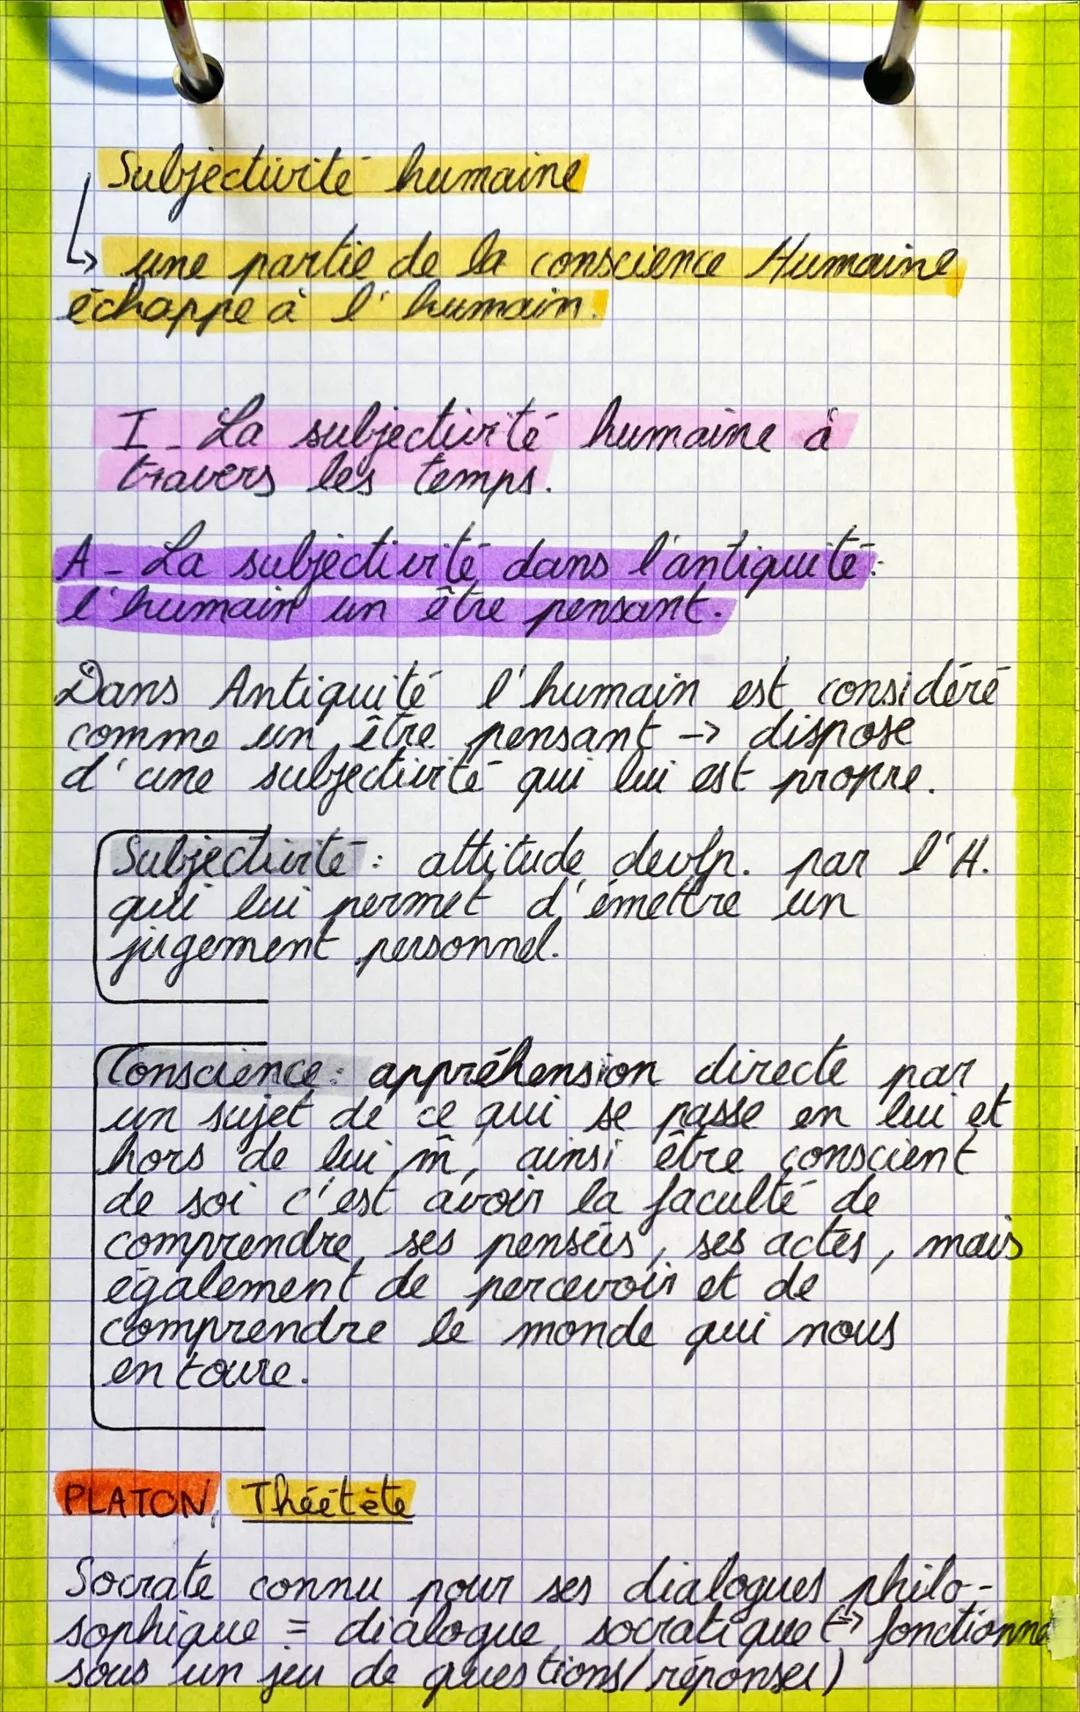 Subjectivité humaine
↳ une partie de la conscience Humaine
échappe à l'humain.
I - La subjectivité humaine à
travers les temps.
A - La subjectivité dans l'antiquité :
l'humain un être pensant.
Dans Antiquité l'humain est considéré
comme un être pensant -> dispose
d'une subjectivité qui lui est propre.
Subjectivité : attitude devlp. par l'H.
qui lui permet d'émettre un
jugement personnel.
Conscience : appréhension directe par
un sujet de ce qui se passe en lui et
hors de lui m̂, ainsi être conscient
de soi c'est avoir la faculté de
comprendre ses pensées, ses actes, mais
également de percevoir et de
comprendre le monde qui nous
entoure.
PLATON, Théétète
Socrate connu pour ses dialogues philo-
sophique = dialogue socratique (-> fonctionne
sous un jeu de questions/réponses)